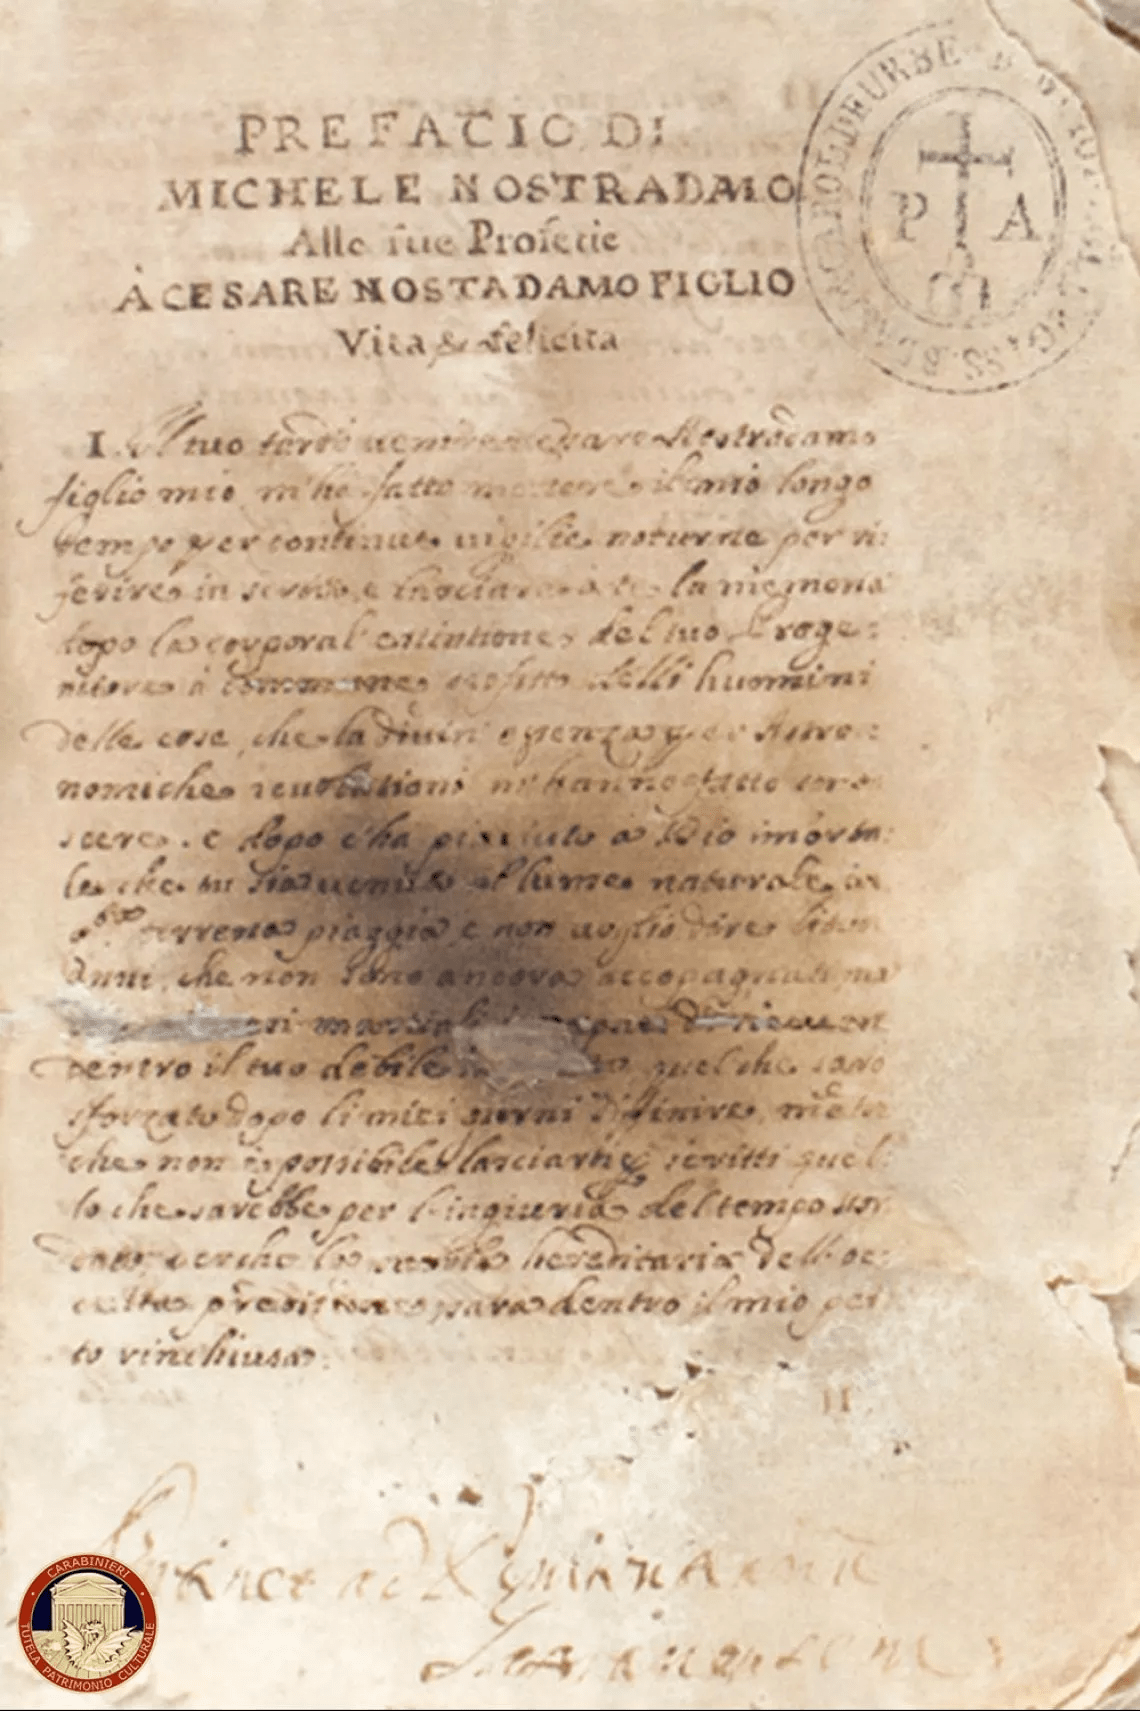 PREFATIO DI
MICHELE NOSTRADAMO
Alle sue Profetie
À CESARE NOSTADAMO FIGLIO
Vita & felicita
P A
I. Il tuo tardo Nostradamo
figlio mio m'ha fatto mettere il mio longo
tempo per continue vigilie noturne per ri:
ferire in scritto, e lasciare à te la memoria
dopo la corporal estintione del tuo Proge:
nitore à commune profitto delli huomini
delle cose, che la divin' essenza per Astro:
nomiche revolutioni m'hanno fatto cono:
scere. e dopo c'ha piaciuto à Dio imorta:
le che tu sia venuto al lume naturale in
terrena piaggia, e non voglio dire li tuoi
Anni, che non sono ancora accopagnati, ma
martiali
dentro il tuo debile quel che saro
sforzato dopo li miei giorni diffinire,
che non è possibile lasciarti scritti quel:
lo che sarebbe per l'ingiuria del tempo
perche la hereditaria dell' oc:
culta predittione sara dentro il mio pet:
to rinchiusa.
CARABINIERI
TUTELA PATRIMONIO CULTURALE